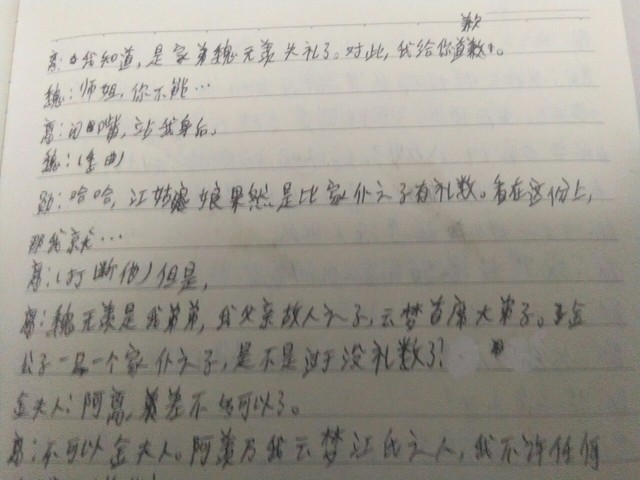 歉
离:我知道,是家弟魏无羡失礼了。对此,我给你道歉。
魏:师姐,你不能…
离:闭嘴,站我身后。
魏:(委曲)
勋:哈哈,江姑娘果然是比家仆之子有礼数。看在这份上,
那我就…
离:(打断他)但是,
离:魏无羡是我弟弟,我父亲故人之子,云梦首席大弟子。金
公子一口一个家仆之子,是不是过于没礼数了?
金夫人:阿离,差不多可以了。
离:不可以金夫人。阿羡乃我云梦江氏之人,我不许任何